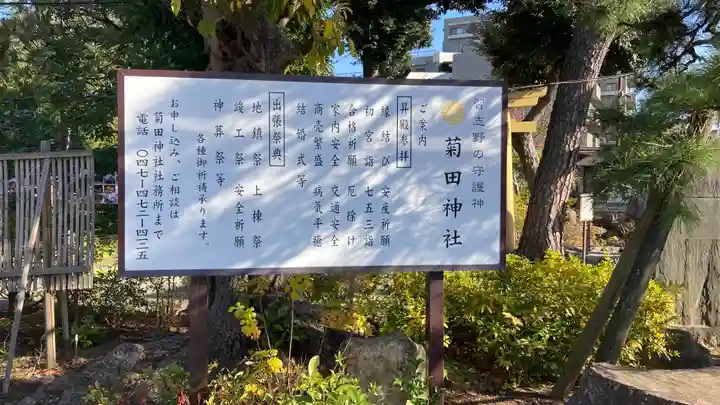 習志野の守護神
菊田神社
ご案内
昇殿参拝
縁結び 安産祈願
初宮詣 七五三詣
合格祈願 厄除け
家内安全 交通安全
商売繁盛 病気平癒
結婚式等
出張祭典
地鎮祭 上棟祭
竣工祭 安全祈願
神葬祭等
各種御祈祷承ります。
お申し込み、ご相談は
菊田神社社務所まで
電話 〇四七-四七二-四二三五